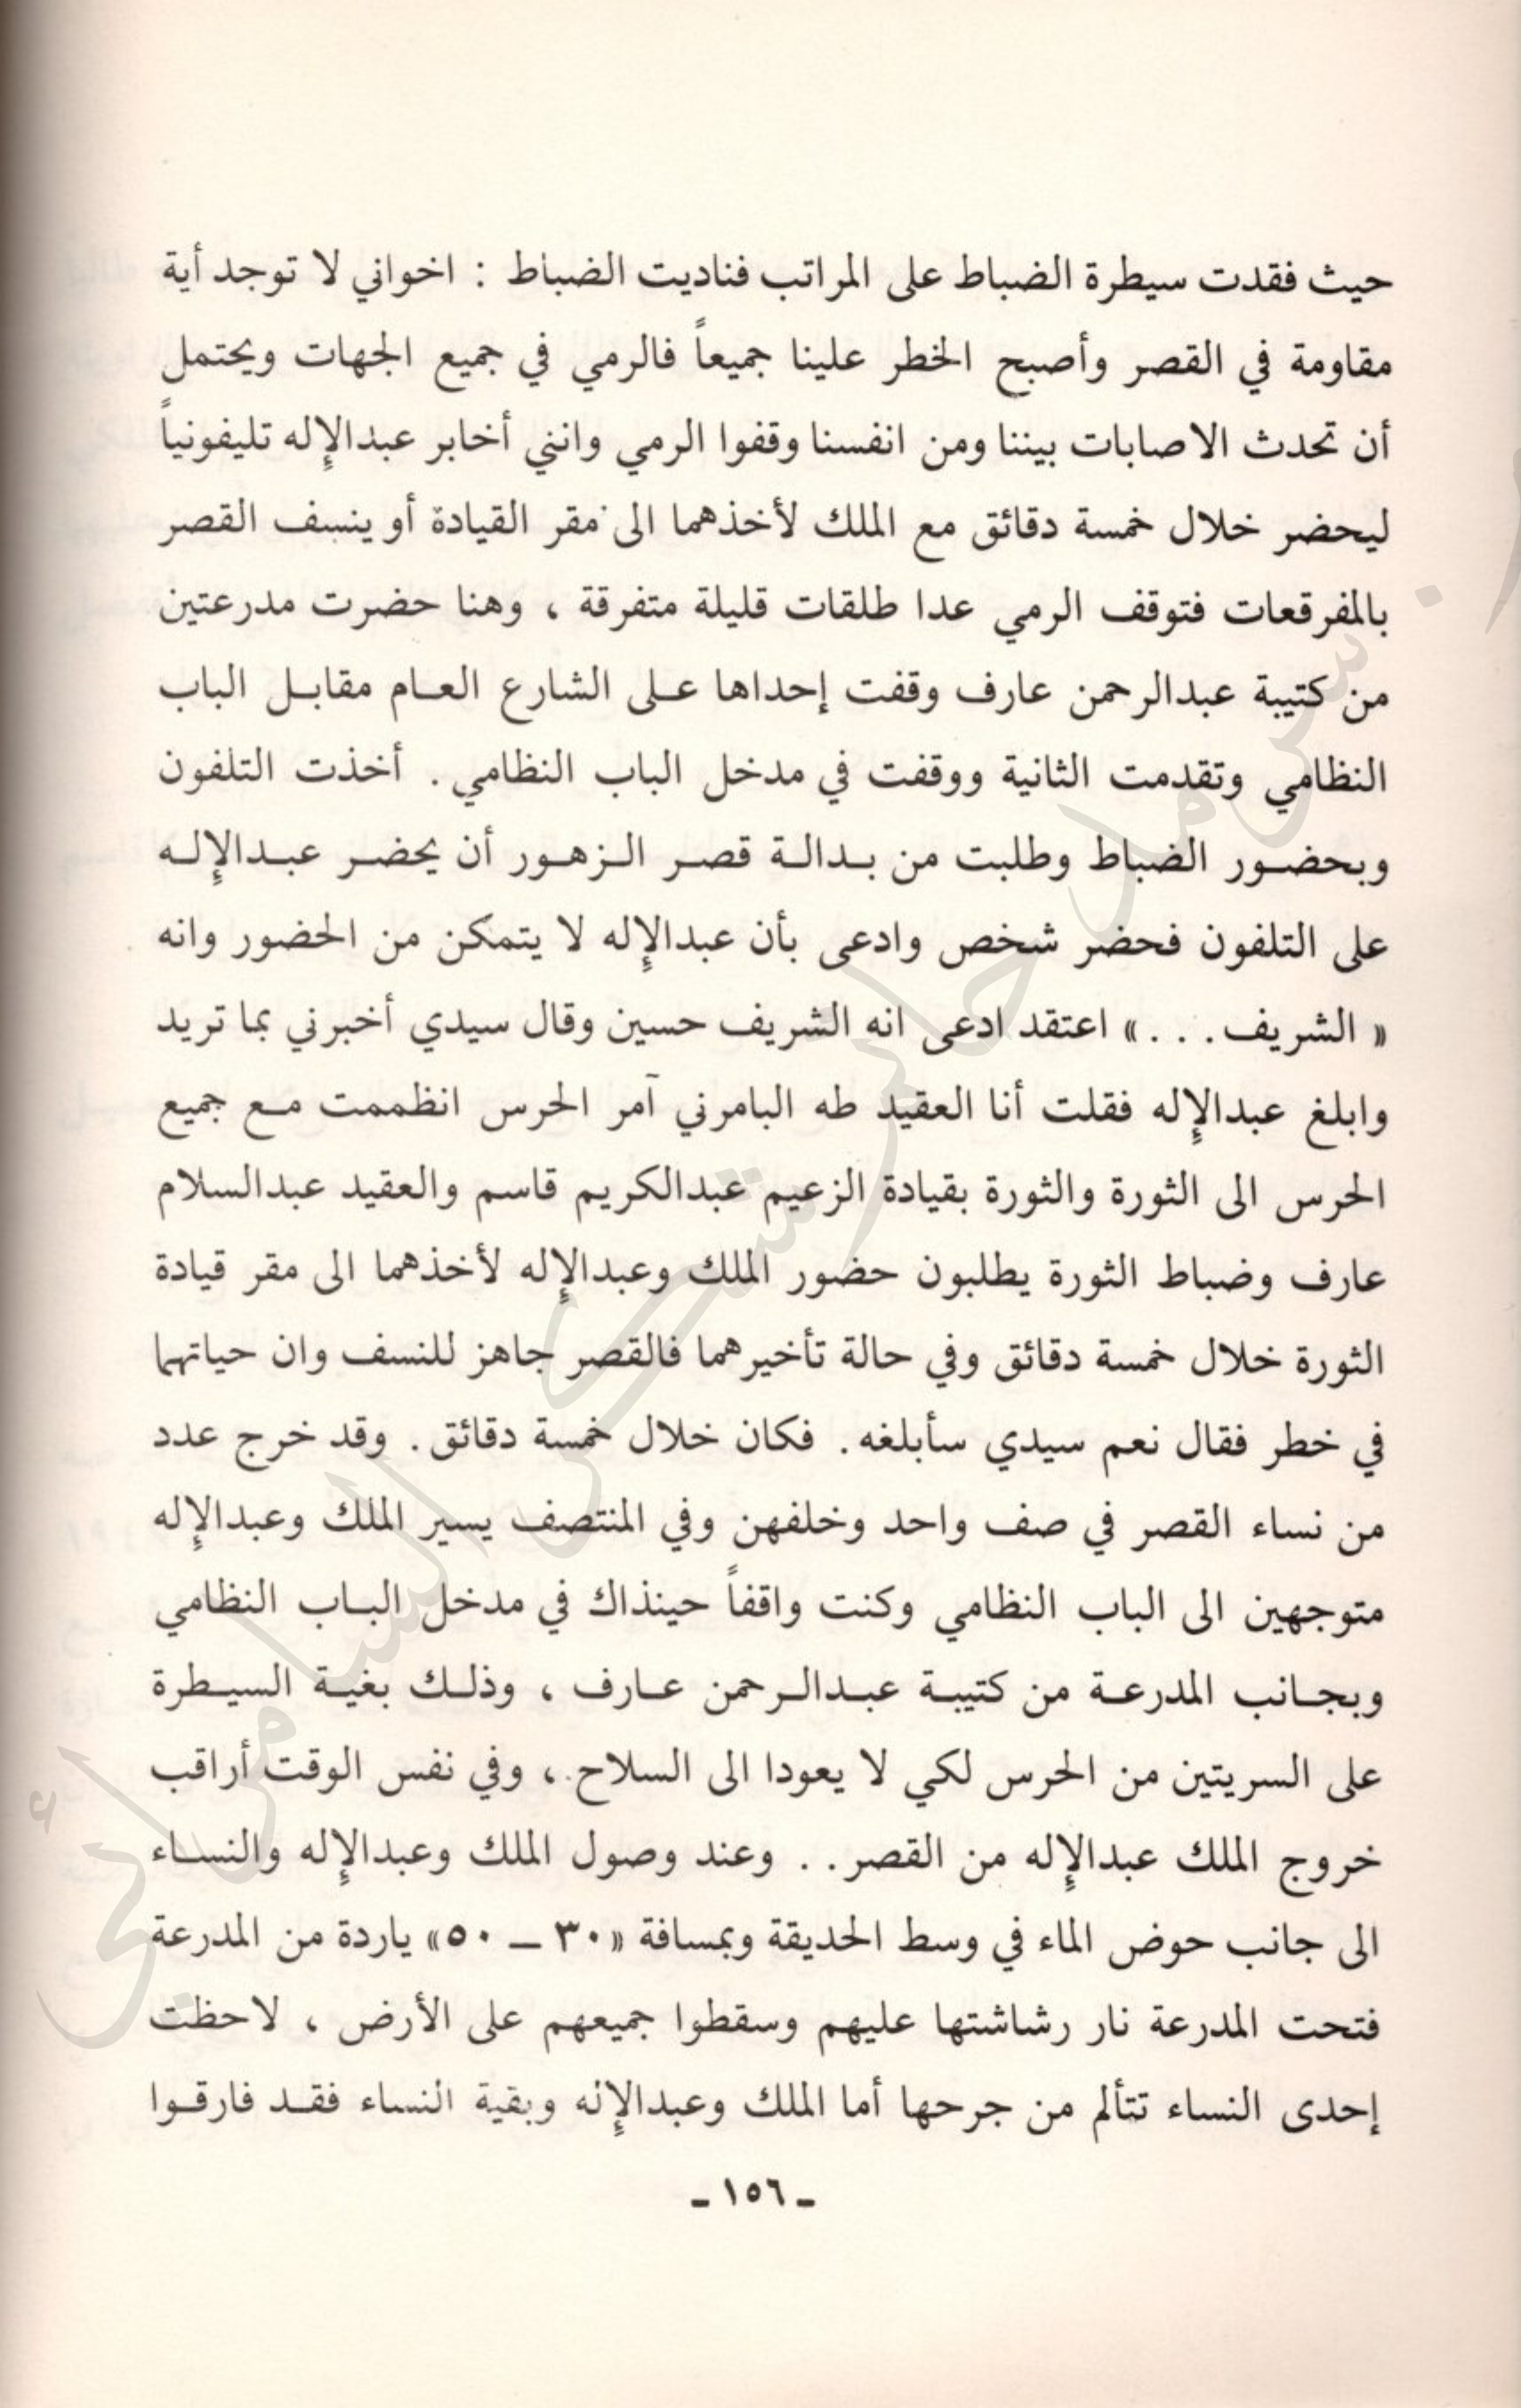 حيث فقدت سيطرة الضباط على المراتب فناديت الضباط : اخواني لا توجد أية
مقاومة في القصر وأصبح الخطر علينا جميعاً فالرمي في جميع الجهات ويحتمل
أن تحدث الاصابات بيننا ومن انفسنا وقفوا الرمي وانني أخابر عبدالإله تليفونياً
ليحضر خلال خمسة دقائق مع الملك لأخذهما الى مقر القيادة أو ينسف القصر
بالمفرقعات فتوقف الرمي عدا طلقات قليلة متفرقة ، وهنا حضرت مدرعتين
من كتيبة عبدالرحمن عارف وقفت إحداها على الشارع العام مقابل الباب
النظامي وتقدمت الثانية ووقفت في مدخل الباب النظامي . أخذت التلفون
وبحضور الضباط وطلبت من بدالة قصر الزهور أن يحضر عبدالإله
على التلفون فحضر شخص وادعى بأن عبدالإله لا يتمكن من الحضور وانه
« الشريف . . . » اعتقد ادعى انه الشريف حسين وقال سيدي أخبرني بما تريد
وابلغ عبدالإله فقلت أنا العقيد طه البامرني آمر الحرس انظممت مع جميع
الحرس الى الثورة والثورة بقيادة الزعيم عبدالكريم قاسم والعقيد عبدالسلام
عارف وضباط الثورة يطلبون حضور الملك وعبدالإله لأخذهما الى مقر قيادة
الثورة خلال خمسة دقائق وفي حالة تأخيرهما فالقصر جاهز للنسف وان حياتهما
في خطر فقال نعم سيدي سأبلغه . فكان خلال خمسة دقائق . وقد خرج عدد
من نساء القصر في صف واحد وخلفهن وفي المنتصف يسير الملك وعبدالإله
متوجهين الى الباب النظامي وكنت واقفاً حينذاك في مدخل الباب النظامي
وبجانب المدرعة من كتيبة عبدالرحمن عارف ، وذلك بغية السيطرة
على السريتين من الحرس لكي لا يعودا الى السلاح ، وفي نفس الوقت أراقب
خروج الملك عبدالإله من القصر . . وعند وصول الملك وعبدالإله والنساء
الى جانب حوض الماء في وسط الحديقة وبمسافة «٣٠ ــ ٥٠» ياردة من المدرعة
فتحت المدرعة نار رشاشتها عليهم وسقطوا جميعهم على الأرض ، لاحظت
إحدى النساء تتألم من جرحها أما الملك وعبدالإله وبقية النساء فقد فارقوا
ـ ١٥٦ ـ